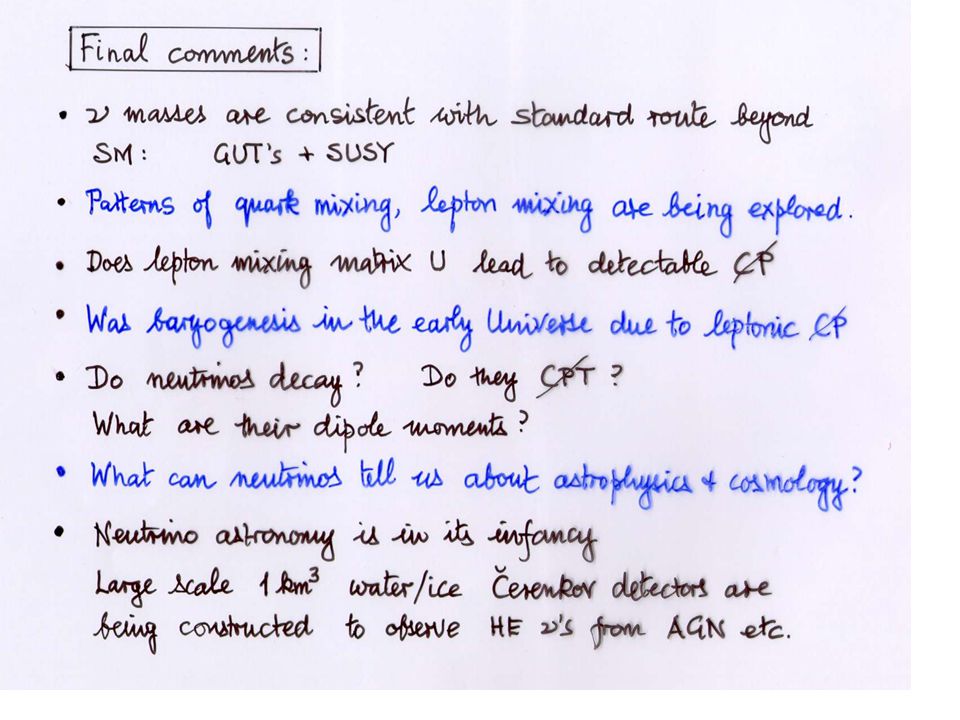 Final comments:
• ν masses are consistent with standard route beyond
SM: GUT's + SUSY
• Patterns of quark mixing, lepton mixing are being explored.
• Does lepton mixing matrix U lead to detectable C̸P̸
• Was baryogenesis in the early Universe due to leptonic C̸P̸
• Do neutrinos decay? Do they C̸P̸T̸ ?
What are their dipole moments?
• What can neutrinos tell us about astrophysics + cosmology?
• Neutrino astronomy is in its infancy
Large scale 1 km³ water/ice Čerenkov detectors are
being constructed to observe HE ν's from AGN etc.